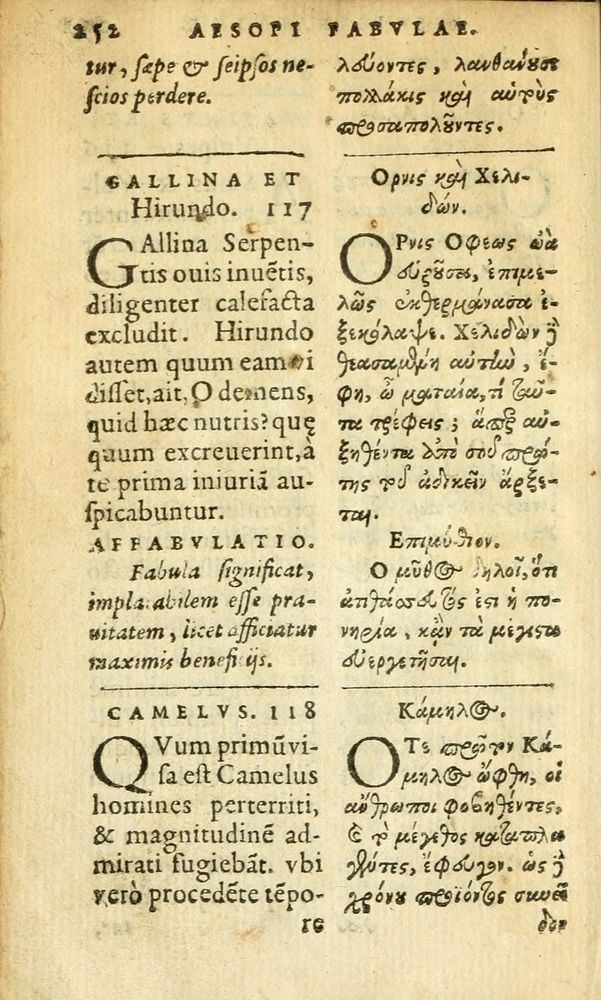 252 AESOPI FABVLAE.
tur, sæpe & seipsos ne-
scios perdere.
GALLINA ET
Hirundo. 117
GAllina Serpen-
tis ouis inuẽtis,
diligenter calefacta
excludit. Hirundo
autem quum eam vi
disset, ait, O demens,
quid hæc nutris? quę
quum excreuerint, à
te prima iniuriã au-
spicabuntur.
AFFABVLATIO.
Fabula significat,
implacabilem esse pra-
uitatem, licet afficiatur
maximis beneficijs.
CAMELVS. 118
QVum primũ vi-
sa est Camelus
homines perterriti,
& magnitudinẽ ad-
mirati fugiebãt. vbi
verò procedẽte tẽpo-
re
λδύοντες, λανθάνουσι
πολλάκις καὶ αὑτοὺς
προσαπολοῦντες.
Ορνις καὶ Χελι-
δών.
ΟΡνις Οφεως ὠὰ
εὑροῦσα, ἐπιμε-
λῶς ἐκθερμάνασα ἐ-
ξεκόλαψε. Χελιδὼν δὲ
θεασαμένη αὐτὴν, ἔ-
φη, ὦ ματαία, τί ταῦ-
τα τρέφεις; ἅπερ αὐ-
ξηθέντα ἀπὸ σοῦ πρώ-
της τοῦ ἀδικεῖν ἄρξε-
ται.
Επιμύθιον.
Ο μῦθος δηλοῖ, ὅτι
ἀτιθάσσευτός ἐστι ἡ πο-
νηρία, κἂν τὰ μέγιστα
εὐεργετῆται.
Κάμηλος.
ΟΤε πρῶτον Κά-
μηλος ὤφθη, οἱ
ἄνθρωποι φοβηθέντες,
καὶ τὸ μέγεθος καταπλα
γέντες, ἔφευγον. ὡς δὲ
χρόνου προϊόντος συνεῖ
δον